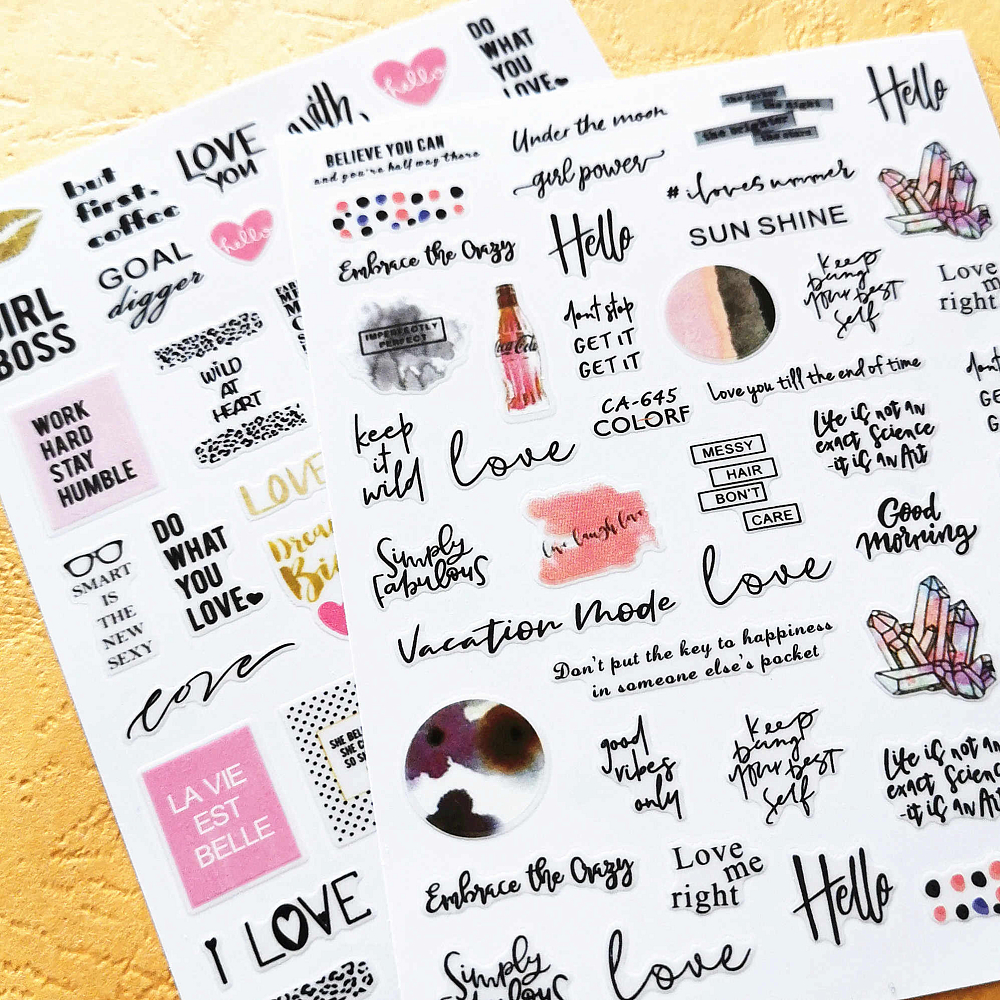 DO
WHAT
YOU
LOVE
hello
with
LOVE
YOU
but
first,
coffee
hello
GOAL
digger
GIRL
BOSS
WILD
AT
HEART
WORK
HARD
STAY
HUMBLE
LOVE
DO
WHAT
YOU
LOVE
SMART
IS
THE
NEW
SEXY
love
LA VIE
EST
BELLE
I LOVE
BELIEVE YOU CAN
and you're half way there
Under the moon
girl power
Hello
#ilovesummer
SUN SHINE
Embrace the Crazy
Hello
Keep
being
your best
self
Love
me
right
IMPERFECTLY
PERFECT
Coca Cola
dont stop
GET IT
GET IT
CA-645
COLORF
love you till the end of time
keep
it
wild
love
MESSY
HAIR
BON'T
CARE
Life is not an
exact Science
-it is an Art
Simply
Fabulous
live laugh love
Good
Morning
love
Vacation Mode
Don't put the key to happiness
in someone else's pocket
good
vibes
only
Keep
being
your best
self
Life is not an
exact Science
-it is an Art
Embrace the Crazy
Love
me
right
Hello
Simply
love